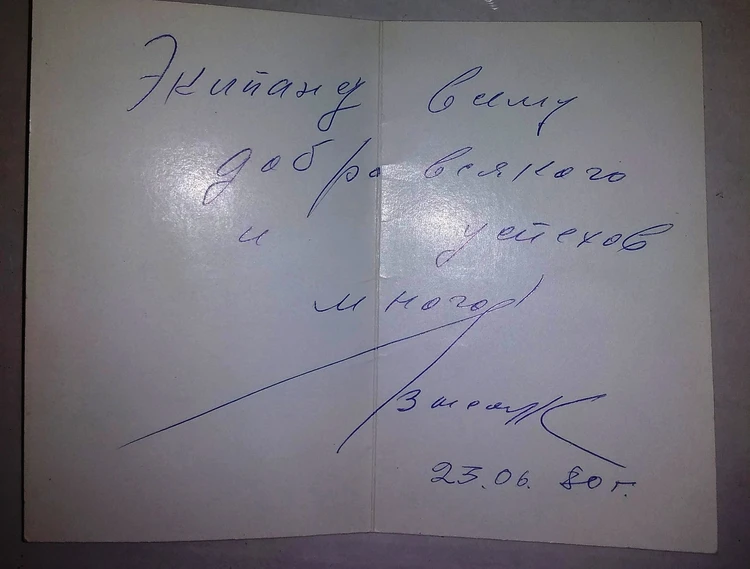 Экипажу всему
добра всякого
и успехов
много!
23.06.80г.